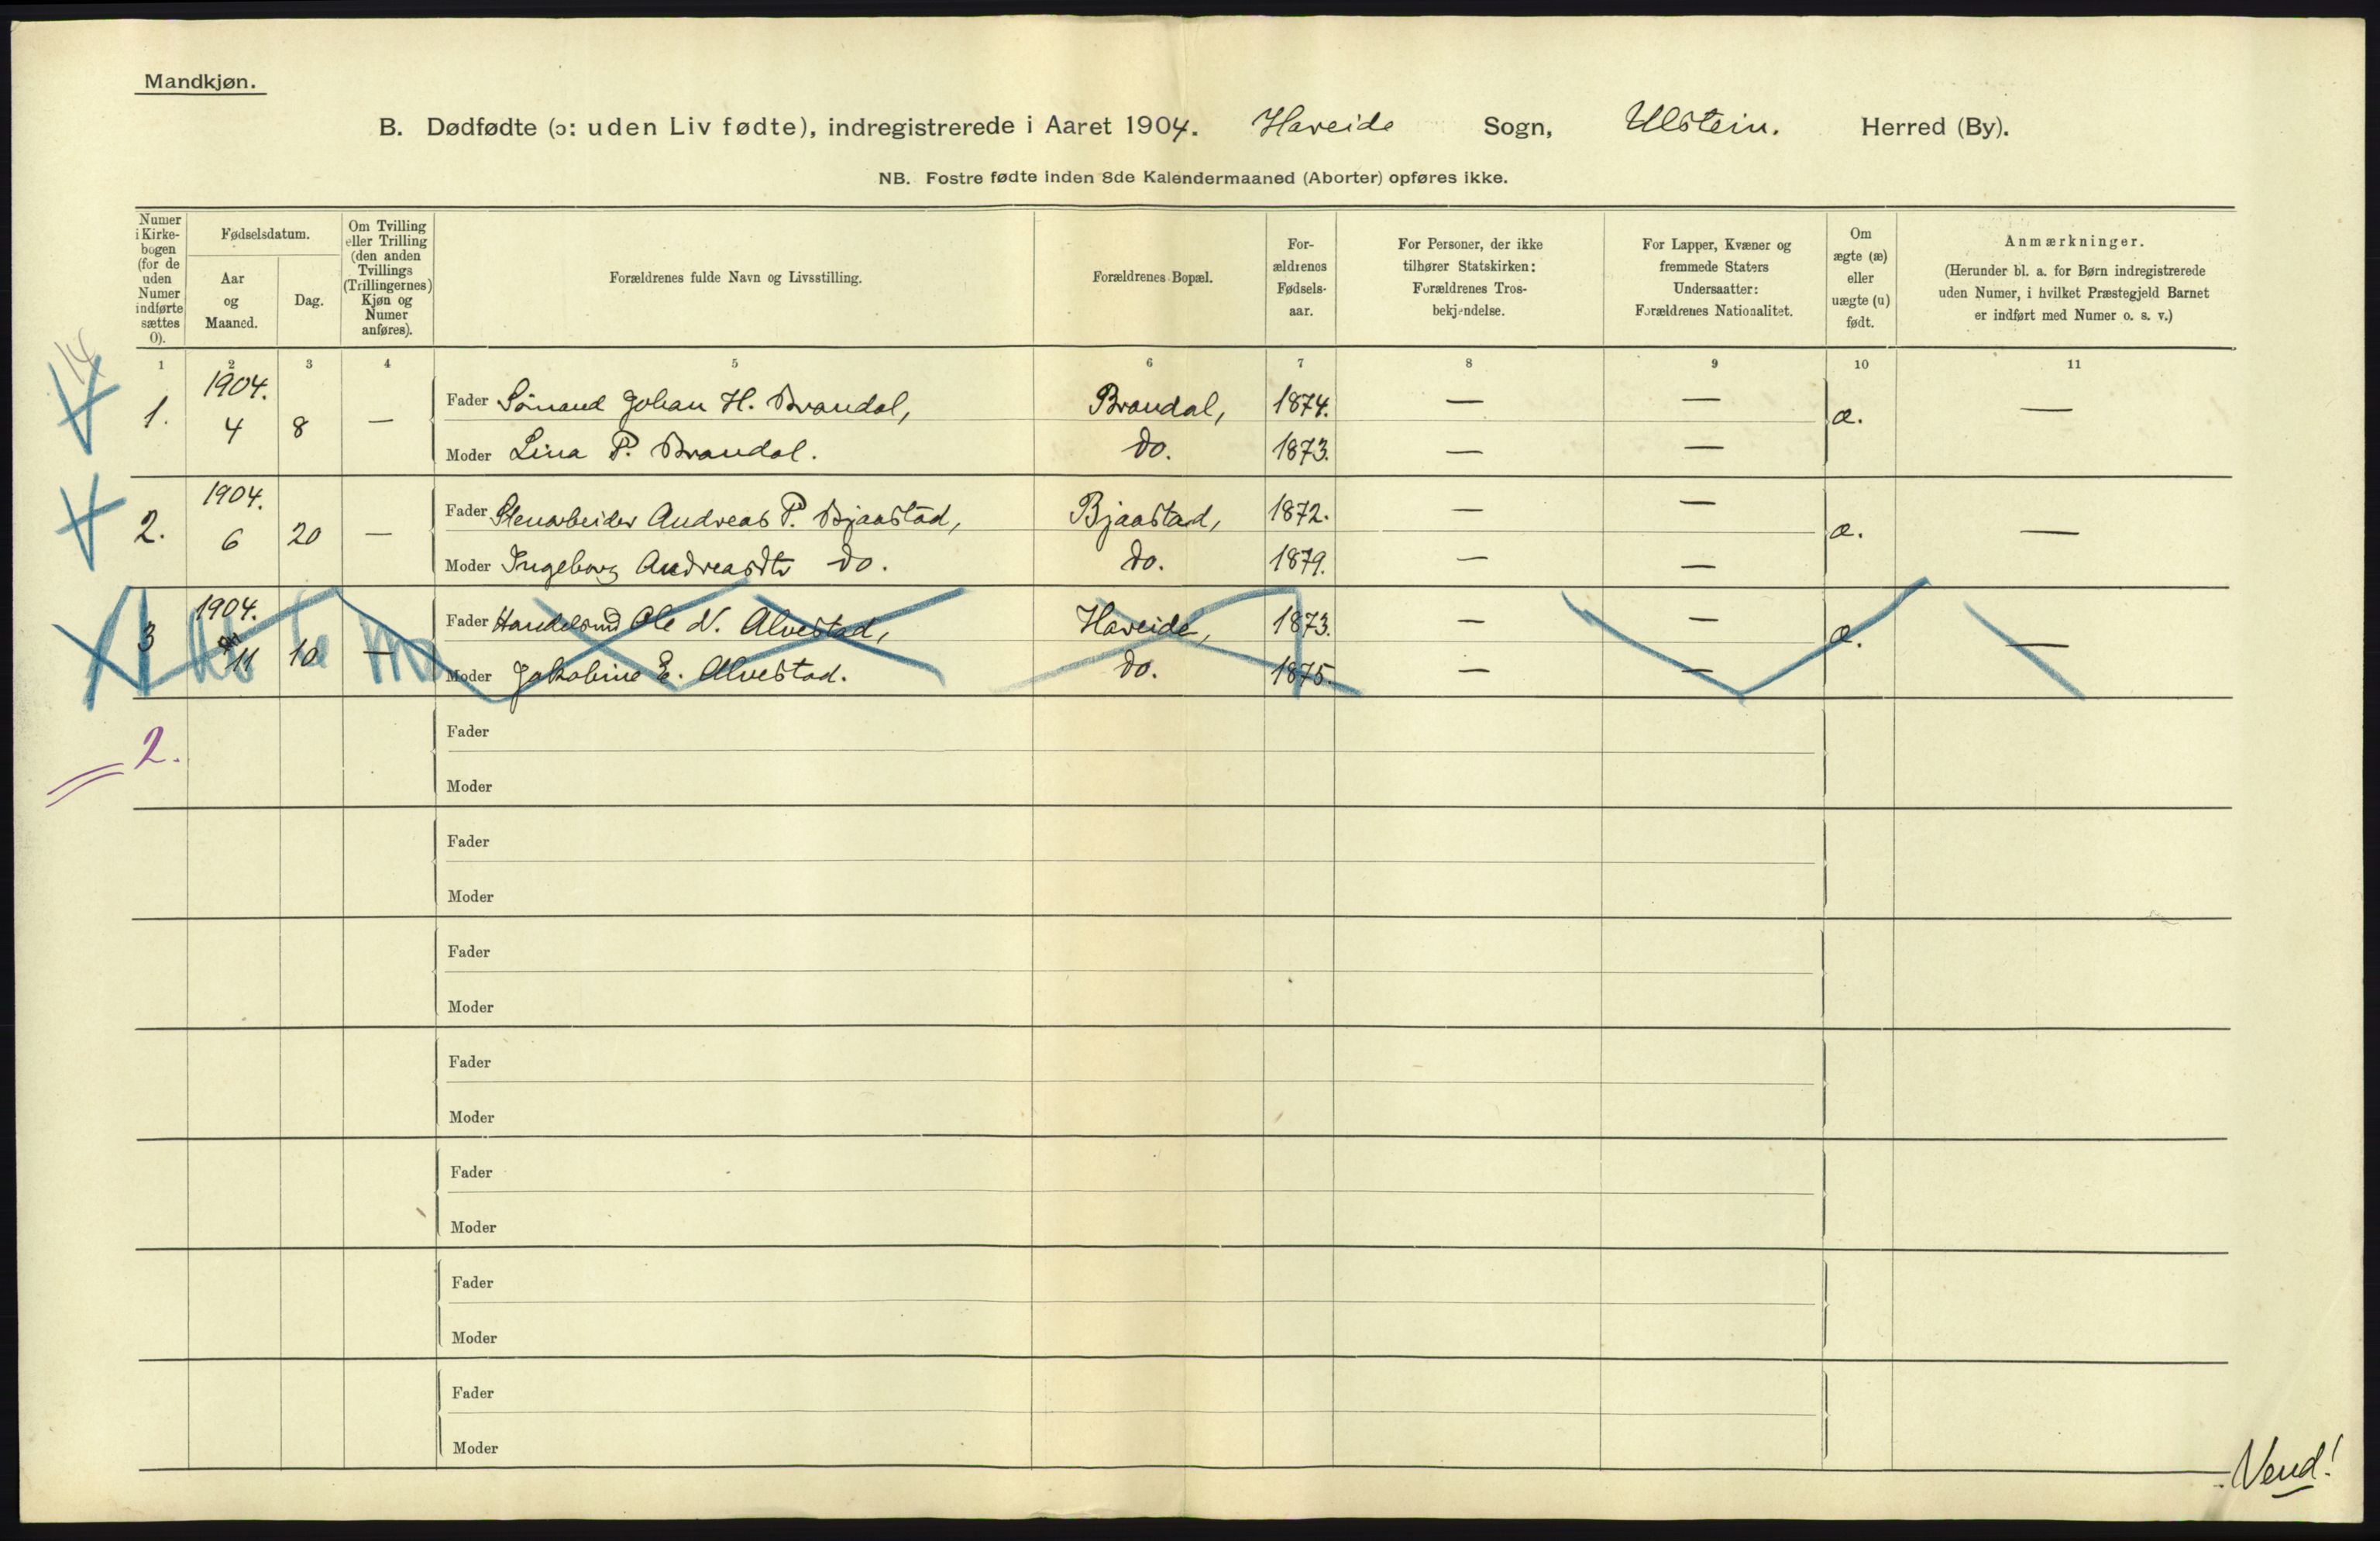 Mandkjøn.
B. Dødfødte (ɔ: uden Liv fødte), indregistrerede i Aaret 1904. Hareide Sogn, Ulstein. Herred (By).
NB. Fostre fødte inden 8de Kalendermaaned (Aborter) opføres ikke.
Numer i Kirke-bogen (for de uden Numer indførte sættes 0).
Fødselsdatum.
Aar og Maaned.
Dag.
Om Tvilling eller Trilling (den anden Tvillings (Trillingernes) Kjøn og Numer anføres).
Forældrenes fulde Navn og Livsstilling.
Forældrenes Bopæl.
For-ældrenes Fødsels-aar.
For Personer, der ikke tilhører Statskirken: Forældrenes Tros-bekjendelse.
For Lapper, Kvæner og fremmede Staters Undersaatter: Forældrenes Nationalitet.
Om ægte (æ) eller uægte (u) født.
Anmærkninger.
(Herunder bl. a. for Børn indregistrerede uden Numer, i hvilket Præstegjeld Barnet er indført med Numer o. s. v.)
14
1 2 3 4 5 6 7 8 9 10 11
1904.
1. 4 8 — Fader Sømand Johan H. Brandal, Brandal, 1874. — — æ. —
Moder Lina P. Brandal. do. 1873. — —
1904.
2. 6 20 — Fader Stenarbeider Andreas P. Bjaastad, Bjaastad, 1872. — — æ. —
Moder Ingeborg Andreasdtr do. do. 1879. — —
1904.
3 11 10 — Fader Handelsmd Ole N. Alvestad, Hareide, 1873. — — æ. —
Moder Jakobine E. Alvestad. do. 1875. — —
2.
Fader
Moder
Fader
Moder
Fader
Moder
Fader
Moder
Fader
Moder
Fader
Moder
Fader
Moder
Vend!